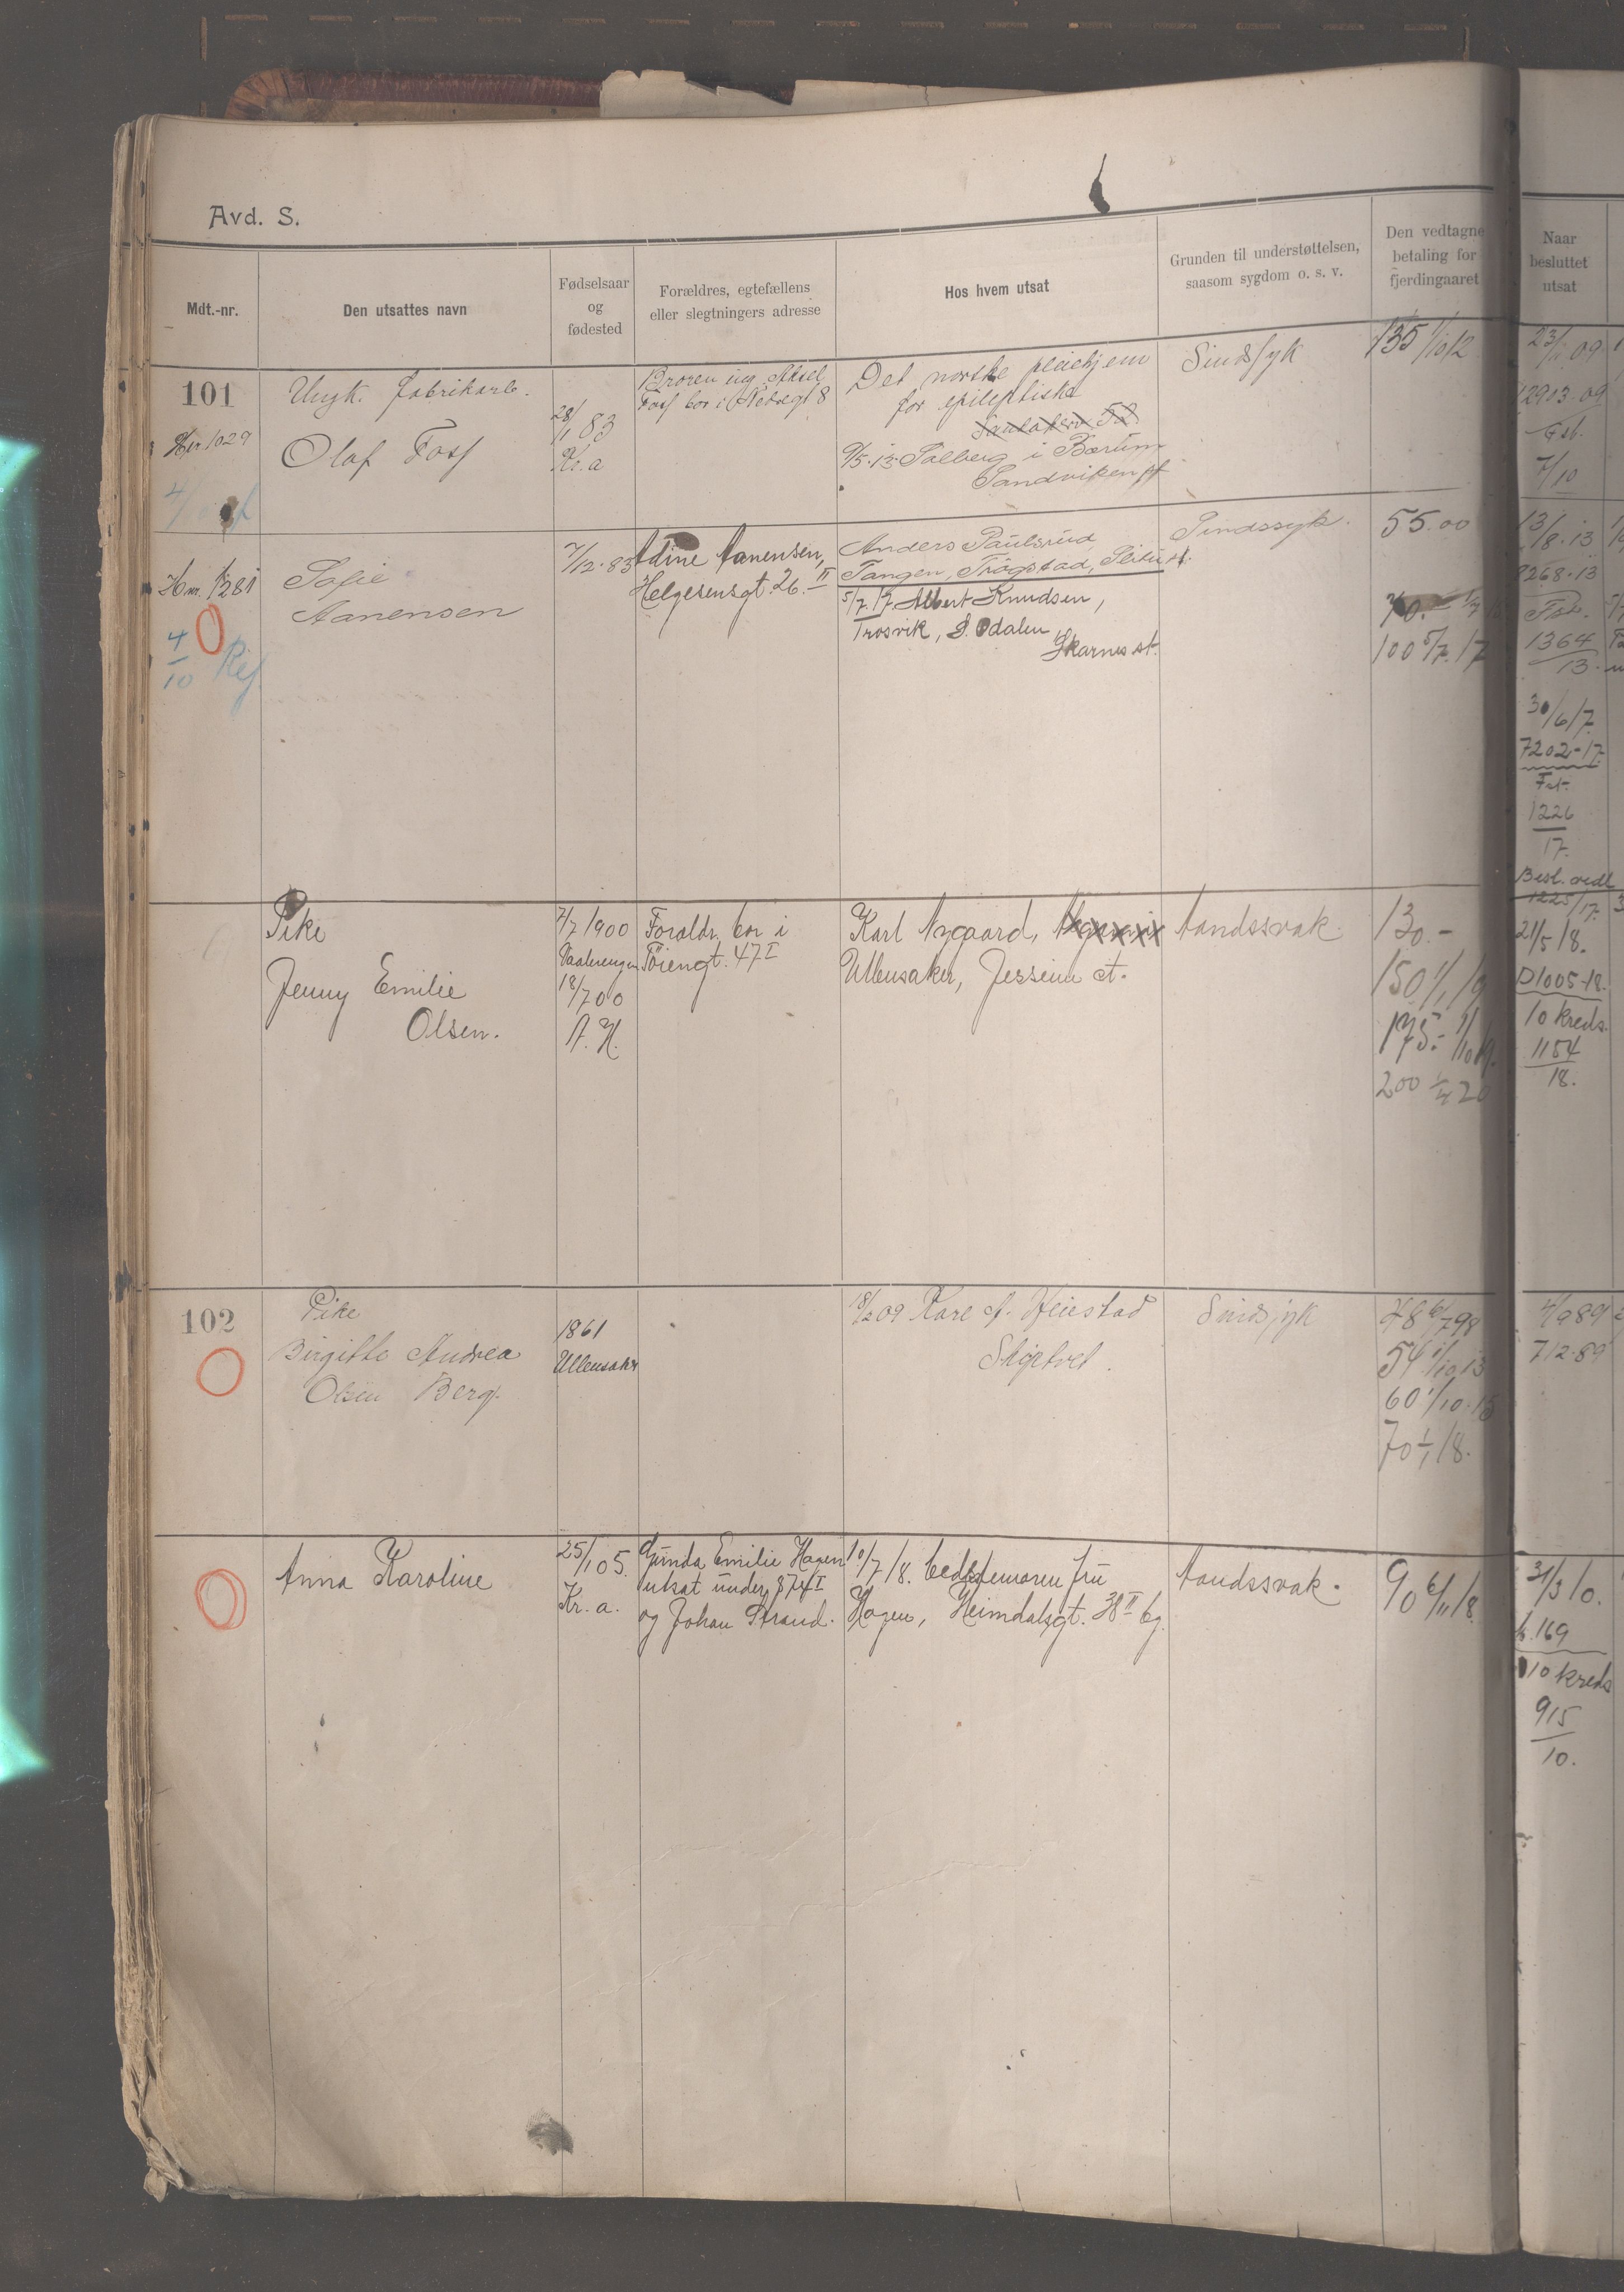 Avd. S.
Mdt.-nr.
Den utsattes navn
Fødselsaar
og
fødested
Forældres, egtefællens
eller slegtningers adresse
Hos hvem utsat
Grunden til understøttelsen,
saasom sygdom o. s. v.
Den vedtagne
betaling for
fjerdingaaret
Naar
besluttet
utsat
101
Hnr 1029
Ungk. fabrikarb.
Olaf Foss
28/1 83
Kr.a
Broren ing. Aksel
Foss bor i Nedregt 8
Det norske pleiehjem
for epileptiske
9/5.13 Solberg i Bærum
Sandviken st
Sindssyk
135 1/10 12
2903.09
Fst.
7/10
Hnr. 1281
4/10 Ref
Sofie
Aanensen
7/12.83
Adine Aanensen,
Helgesensgt. 26. II
Anders Paulsrud
Tangen, Trøgstad, Slitu st.
5/7.17. Albert Knudsen,
Trosvik, S. Odalen,
Skarnes st.
Sindssyk.
55.00
70.
100 5/7.17
13/8.13
8268.13
Fst.
1364
13.
30/6 17.
7202-17.
Fst.
1226
17.
Pike
Jenny Emilie
Olsen.
7/7 1900
Vaalerengen
18/7 00
A. H.
Foraldr. bor i
Töiengt. 47 I
Karl Nygaard,
Ullensaker, Jessein st.
Aandssvak.
130.-
150 1/1 19
175.- 1/10 19.
200 1/4 20
Besl. vedt
1225/17.
21/5 18.
D1005-18.
10 kreds.
1154
18.
102
Pike
Birgitte Andrea
Olsen Berg.
1861
Ullensaker
18/2 09 Kare A. Heiestad
Skjetvet.
Sindssyk
48 6/7 98
54 1/10.13
60 1/10.15
70 1/1 18.
4/9 89
712.89
Anna Karoline
25/1 05.
Kr. a.
Gunda Emilie Hagen
utsat under 874 I
og Johan Strand.
10/7 18. bedstemoren fru
Hagen, Heimdalsgt. 38 II bg.
Aandssvak.
90 6/11 18.
31/3 10.
169
10 kreds
915
10.